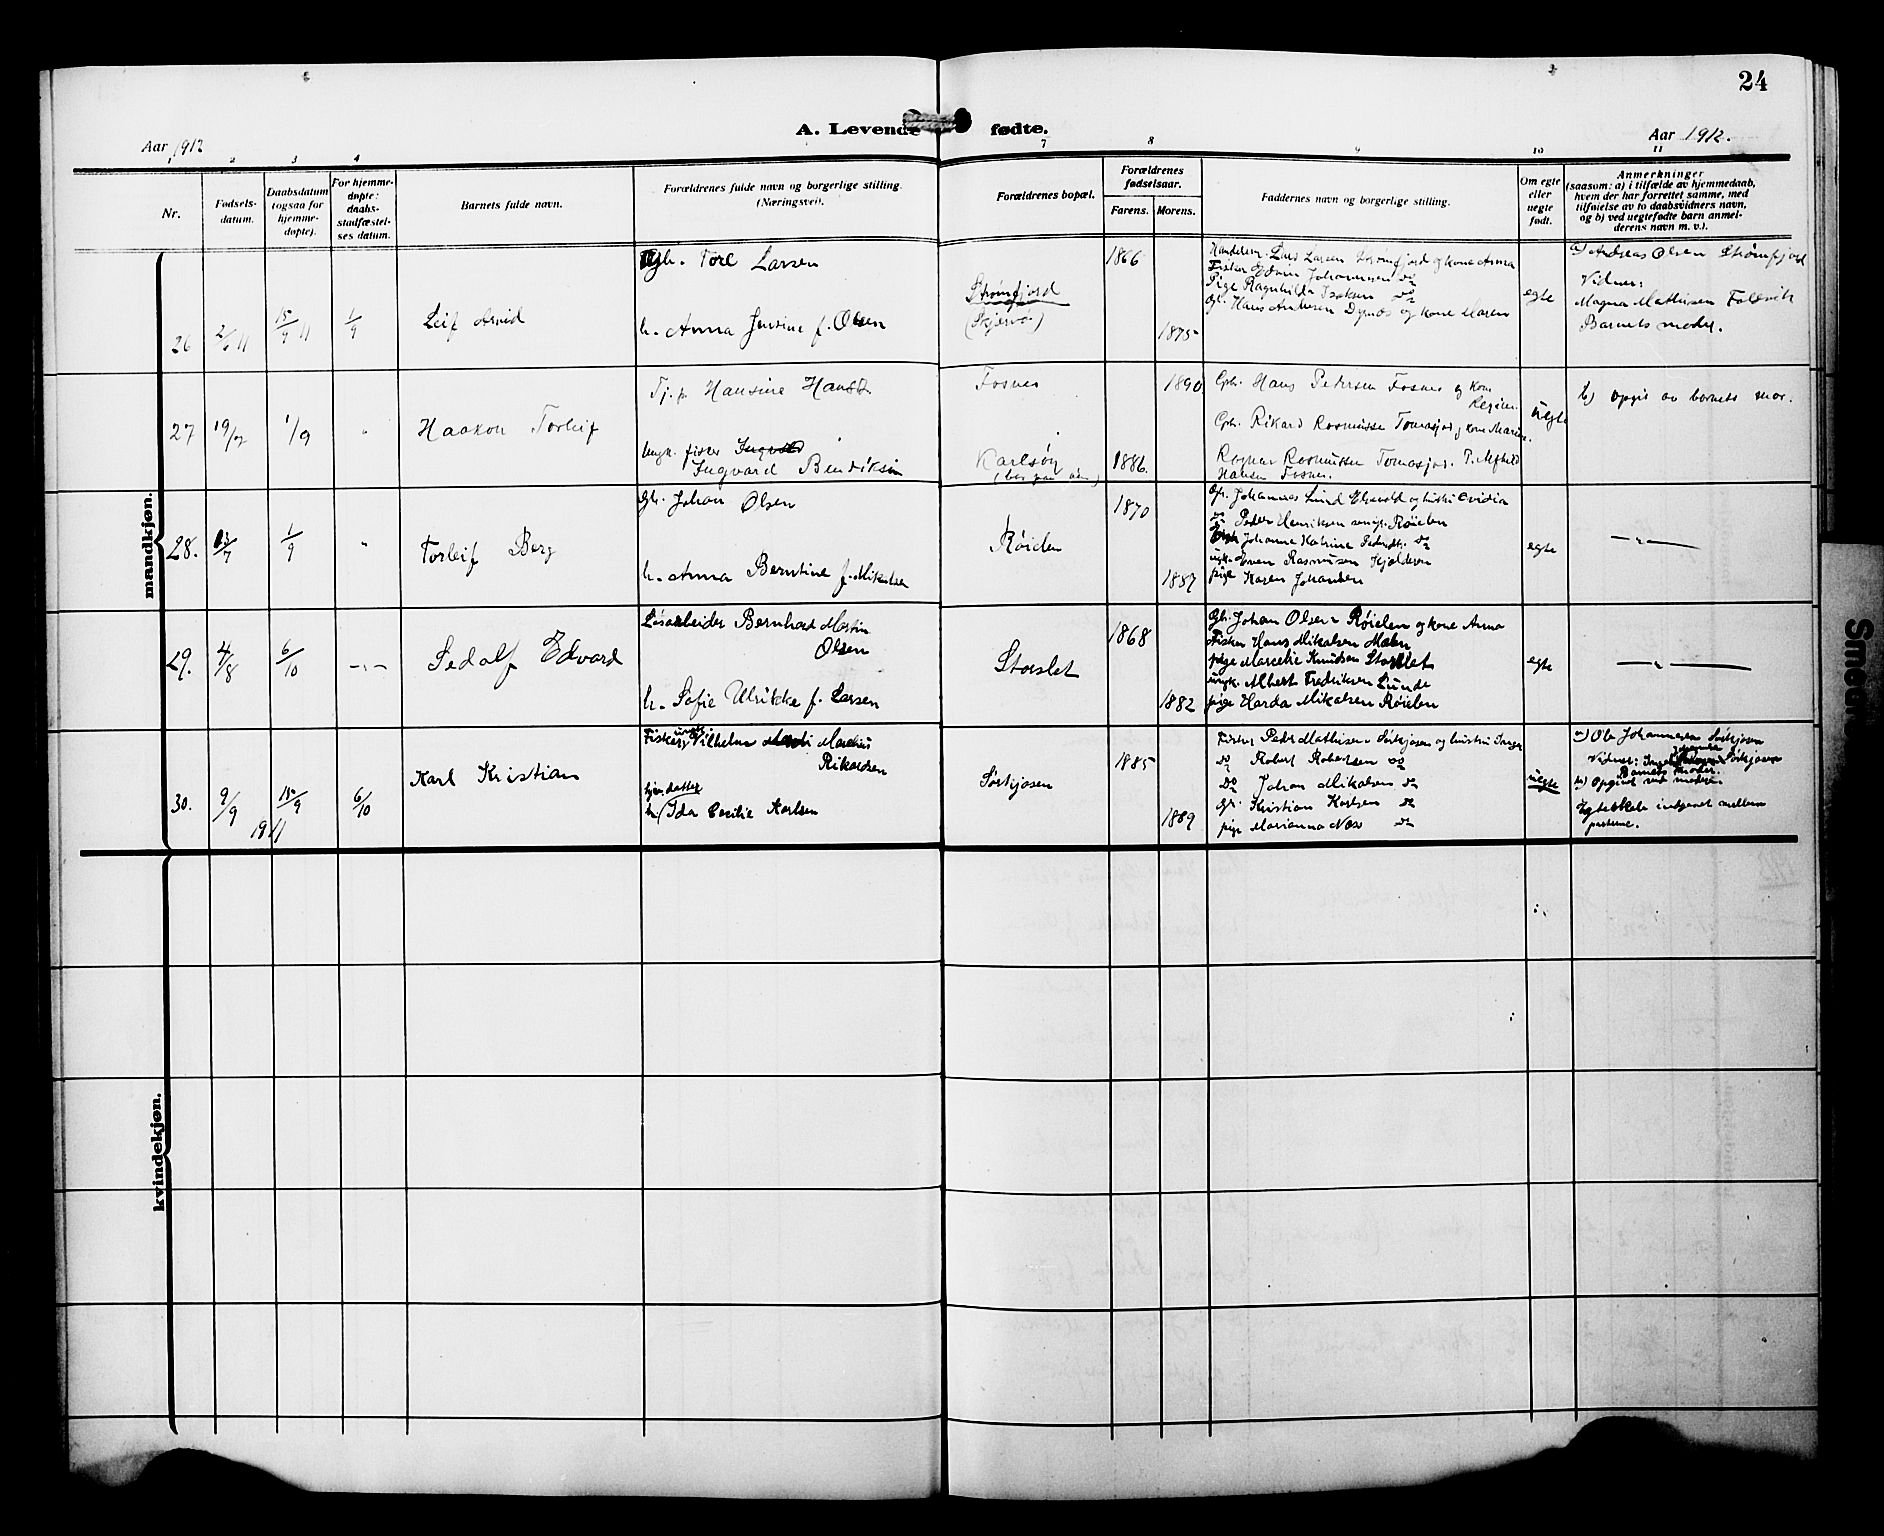 24
A. Levende fødte.
Aar 1912
Aar 1912.
1 2 3 4 7 8 9 10 11
Nr.
Fødsels-
datum.
Daabsdatum
(ogsaa for
hjemme-
døpte).
For hjemme-
døpte:
daabs-
stadfæstel-
ses datum.
Barnets fulde navn.
Forældrenes fulde navn og borgerlige stilling.
(Næringsvei).
Forældrenes bopæl.
Forældrenes
fødselsaar.
Farens. Morens.
Faddernes navn og borgerlige stilling.
Om egte
eller
uegte
født.
Anmerkninger
(saasom: a) i tilfælde av hjemmedaab,
hvem der har forrettet samme, med
tilføielse av to daabsvidners navn,
og b) ved uegtefødte barn anmel-
derens navn m. v.).
mandkjøn.
26
1/9
Leif Arvid
Larsen
h. Anna Jensine f. Olsen
Strømfjord
(Skjervø)
1866
1875
Lars Larsen Strømfjord og kone Anna
Fisker Edvin Johannesen do
Pige Ragnhild Isaksen do
Gbr. Hans Andersen Dynæs og kone Maren
egte
a) Andreas Olsen Strømfjord
Vidner:
Magna Mathisen Foldvik
Barnets moder.
27
19/7
1/9
"
Haakon Torleif
Tj. p. Hansine
Ungk. fisker
Ingvard Bendiksen
Fosnes
Karlsøy
1890
1886.
Gbr. Hans Petersen Fosnes og kone
Gbr. Rikard Rasmussen Tomasjord og kone
Ragnar Rasmussen Tomasjord. P.
Hansen Fosnes.
uegte
b) Opgit av barnets mor.
28.
1/9
"
Torleif Berg
Gbr. Johan Olsen
h. Anna Berntine f. Mikalsen
Røielen
1870
1887
Johannes Lund og hustru
do Peder Henriksen Røielen
Johanna Katrine do
ungk. Even Rasmussen
pige Karen Johansen
egte
— " —
29.
4/8
6/10
- " -
Sedolf Edvard
Løsarbeider Bernhard Martin
Olsen
h. Sofie Ulrikke f. Larsen
Storslet
1868
1882
Gbr. Johan Olsen Røielen og kone Anna
Fisker Hans Mikalsen
pige Marselie Knudsen Storslet
ungk. Albert Fredriksen Lunde
pige Harda Mikalsen Røielen
egte
— " —
30.
9/9
15/9
1911
6/10
Karl Kristian
Fisker ungk. Vilhelm Marelius
Rikardsen
datter
h. Ida Cecilie Karlsen
Sørkjosen
1885
1889
Fisker Peder Mathisen Sørkjosen og hustru Inger
do Robert Robertsen do
do Johan Mikalsen do
Gbr. Kristian Karlsen do
pige Marianna do
uegte
a) Ole Johannesen Sørkjosen
Vidner: Sørkjosen
Barnets moder.
b) Opgivet ved moder.
Egteskab indgaaet mellem
parterne.
kvindekjøn.